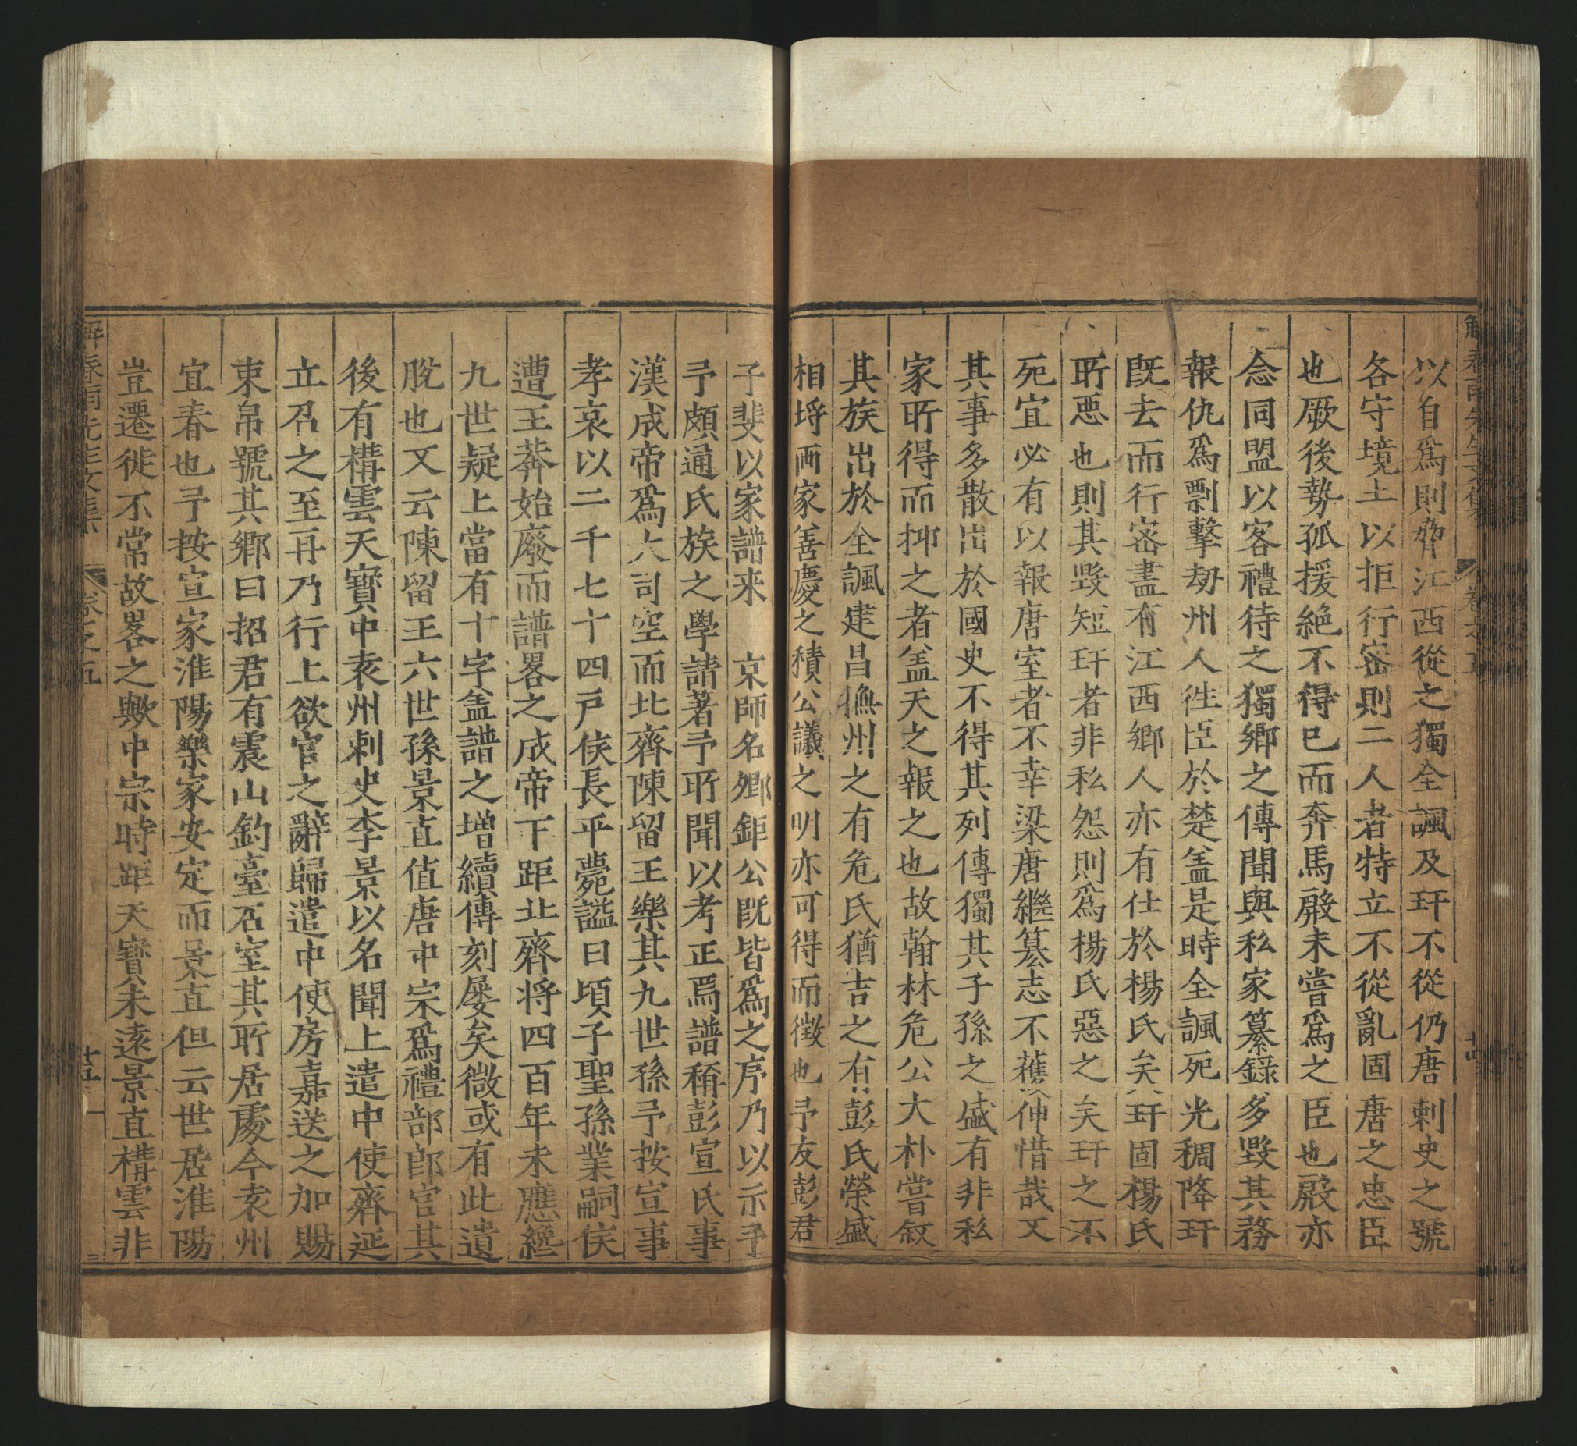 解春雨先生文集 卷之五 廿四
以自爲則脅江西從之獨全諷及玕不從仍唐刺史之號
各守境土以拒行密則二人者特立不從亂固唐之忠臣
也厥後勢孤援絶不得已而奔馬殷未嘗爲之臣也殷亦
念同盟以客禮待之獨鄉之傳聞與私家纂錄多毀其務
報仇爲剽擊刧州人徃臣於楚盖是時全諷死光稠降玕
旣去而行密盡有江西鄉人亦有仕於楊氏矣玕固楊氏
所惡也則其毀短玕者非私怨則爲楊氏惡之矣玕之不
死宜必有以報唐室者不幸梁唐繼簒志不獲伸惜哉又
其事多散出於國史不得其列傳獨其子孫之盛有非私
家所得而抑之者盖天之報之也故翰林危公大朴嘗叙
其族出於全諷建昌撫州之有危氏猶吉之有彭氏榮盛
相埒两家善慶之積公議之明亦可得而徵也予友彭君
子斐以家譜来 京師名鄉鉅公旣皆爲之序乃以示予
予頗通氏族之學請著予所聞以考正焉譜稱彭宣氏事
漢成帝爲大司空而北齊陳留王樂其九世孫予按宣事
孝哀以二千七十四戶侯長平薨謚曰頃子聖孫業嗣侯
遭王莽始廢而譜畧之成帝下距北齊将四百年未應經
九世疑上當有十字盖譜之增續傳刻屡矣微或有此遺
脫也又云陳留王六世孫景直值唐中宗爲禮部郎官其
後有構雲天寳中袁州刺史李景以名聞上遣中使齊延
立召之至再乃行上欲官之辭歸遣中使房嘉送之加賜
束帛號其鄉曰招君有震山釣臺石室其所居處今袁州
宜春也予按宣家淮陽樂家安定而景直但云世居淮陽
豈遷徙不常故畧之歟中宗時距天寳未遠景直構雲非
解春雨先生文集 卷之五 廿五